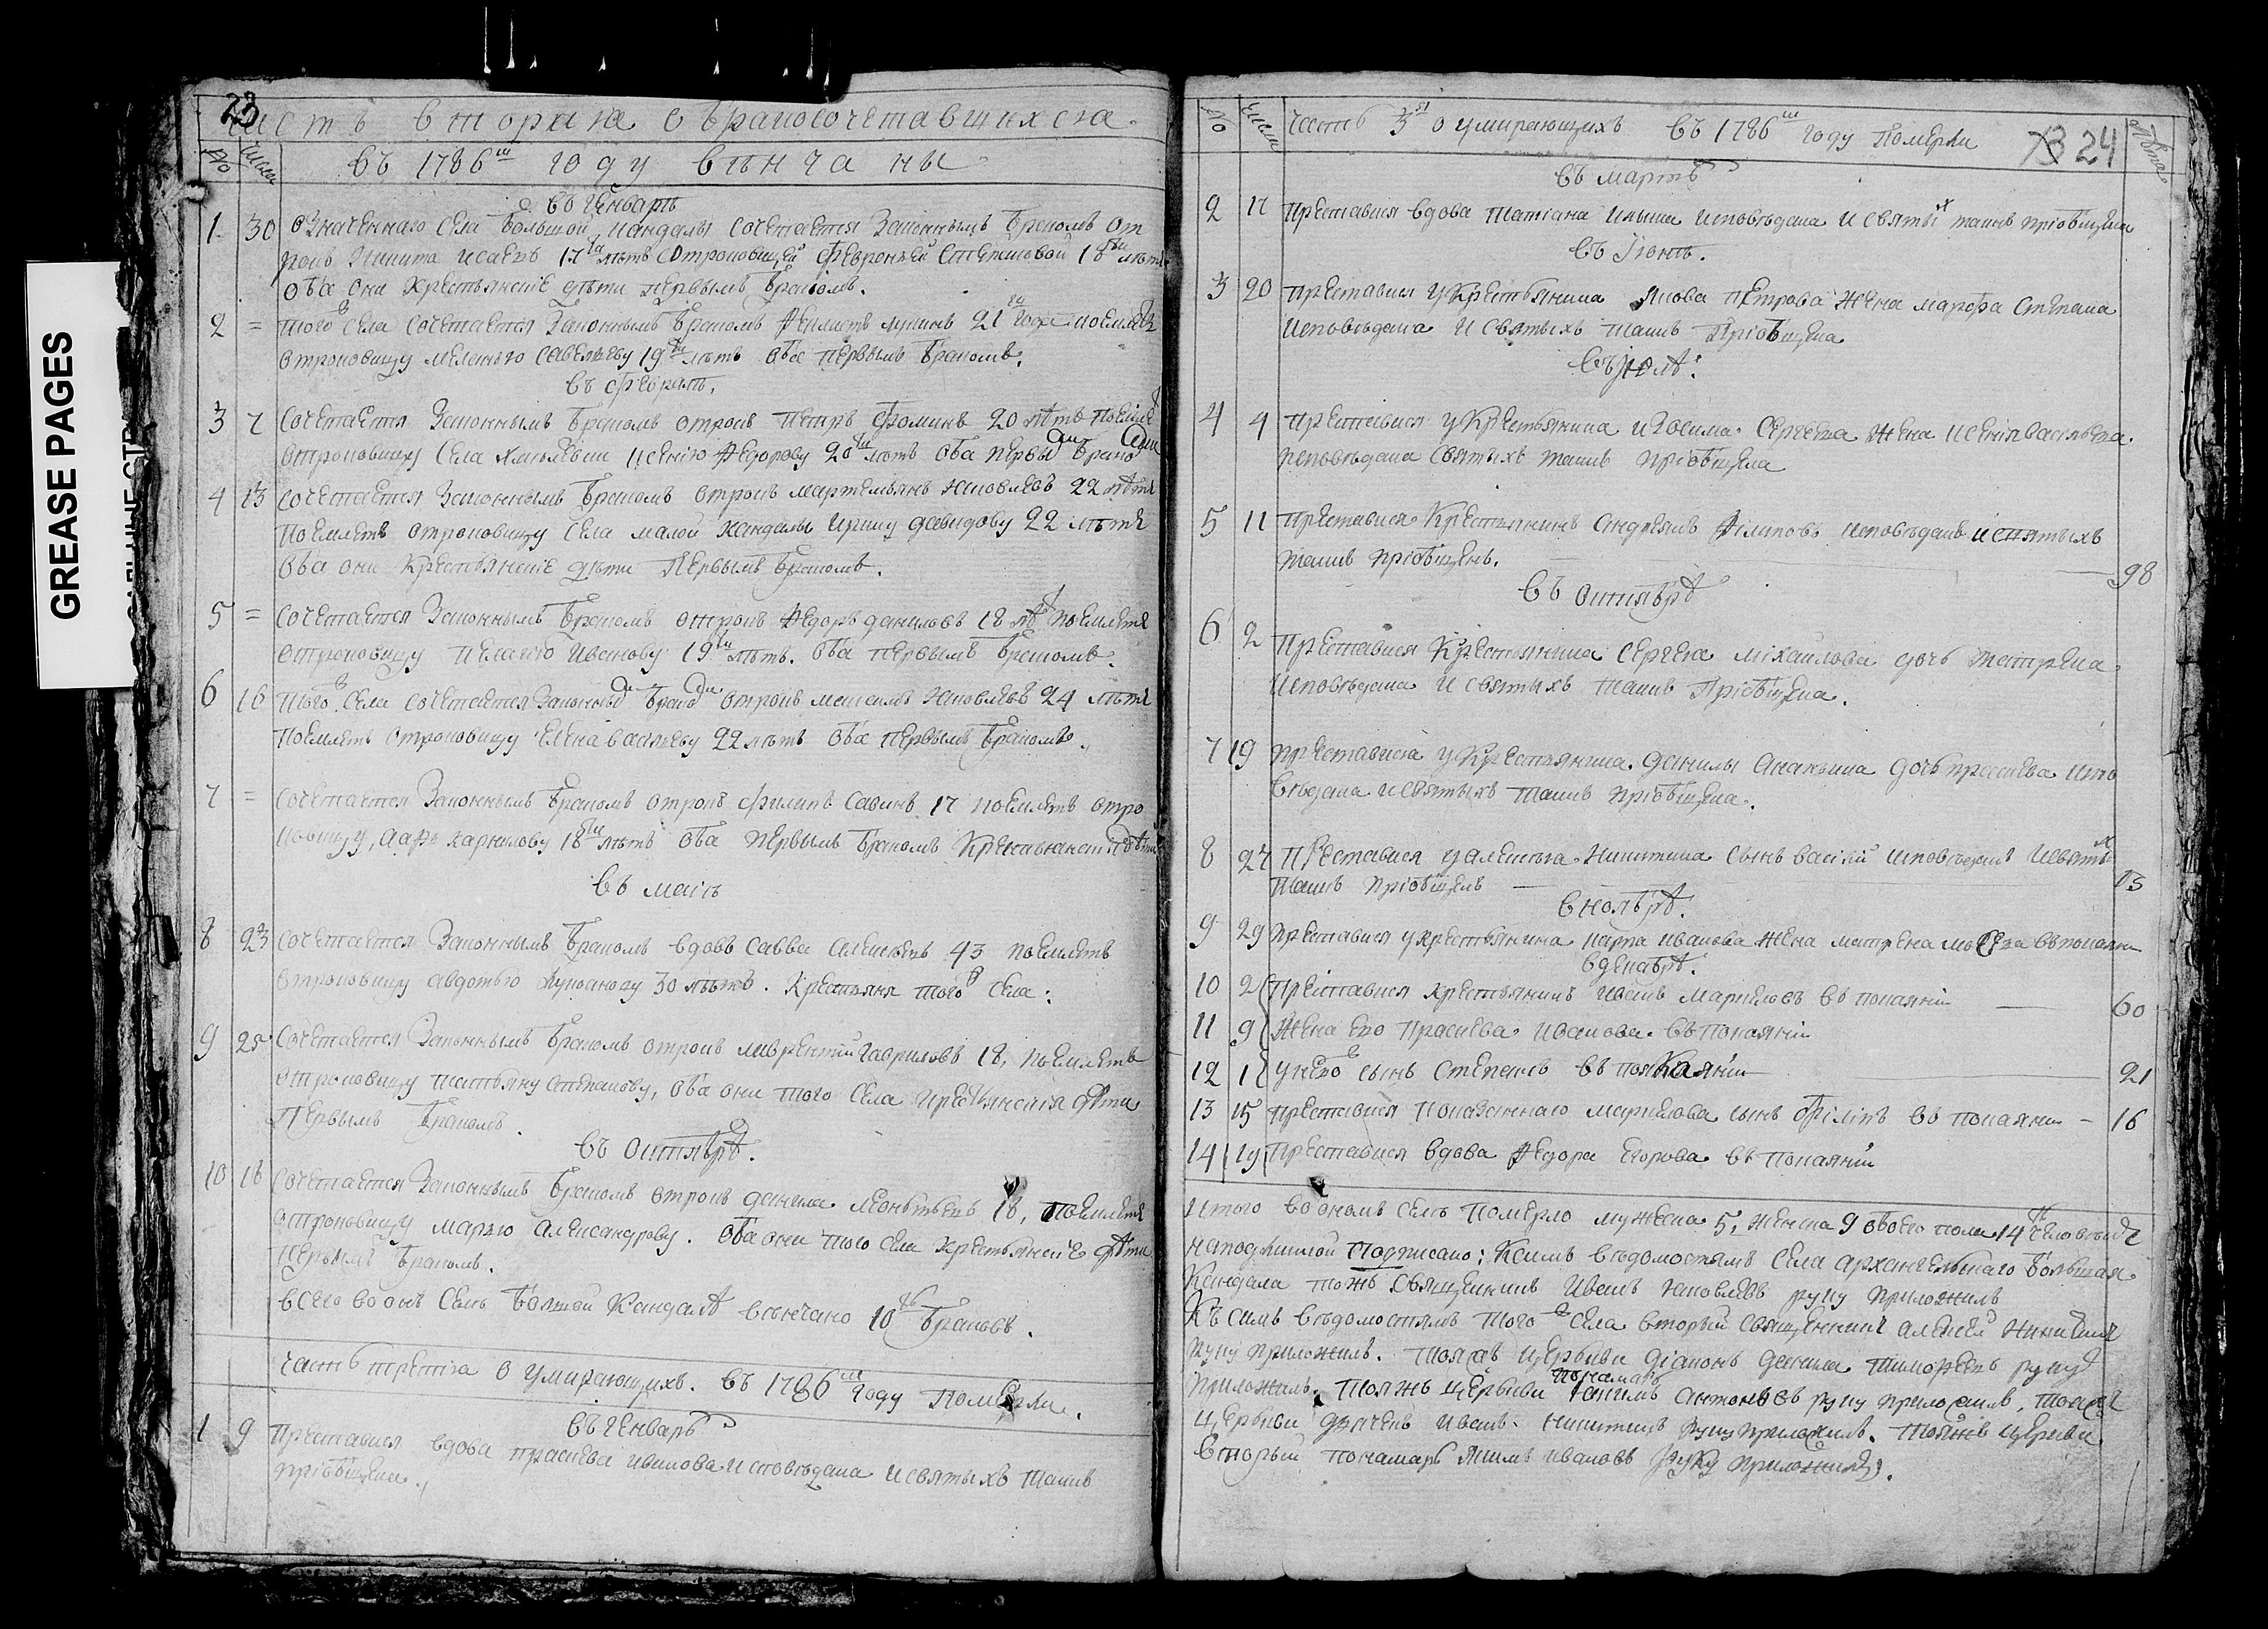 GREASE PAGES
23
часть вторая о бракосочетавшихся.
№ числа въ 1786м году венчаны
въ генваре
1 30 означеннаго села большой кандалы сочетается законнымъ бракомъ от
рокъ Никита исаевъ 17ти летъ сотроковицей Февроньей Степановой 18ти летъ
оба они крестьянскіе дети первымъ бракомъ.
2 = того села сочетается законнымъ бракомъ лукинъ 21 году поемлетъ
отроковицу меланью савельеву 19ти летъ оба первымъ бракомъ.
въ феврале.
3 7 сочетается законнымъ бракомъ отрокъ петръ фоминъ 20 летъ поемле
отроковицу села хмелевки ксению Федорову 20ти летъ оба первы брако
4 13 сочетается законнымъ бракомъ отрокъ мартемьянъ яковлевъ 22 летъ
поемлетъ отроковицу села малой кандалы ирину давидову 22 летъ
оба они крестьянскіе дети первымъ бракомъ.
5 = сочетается законнымъ бракомъ отрокъ Федоръ даниловъ 18 ле поемлетъ
отроковицу пелагею иванову 19ти летъ. оба первымъ бракомъ.
6 16 того села сочетается законны брако отрокъ максимъ яковлевъ 24 летъ
поемлетъ отроковицу елена васильеву 22 летъ оба первымъ бракомъ.
7 = сочетается законнымъ бракомъ отрокъ филипъ савинъ 17 поемлетъ отро
ковицу, карнилову 18ти летъ оба первымъ бракомъ крестьянскія дети
въ маие
8 23 сочетается законнымъ бракомъ вдовъ савва алексеевъ 43 поемлетъ
отроковицу авдотью лукоянову 30 летъ. крестьяня того села:
9 25 сочетается законнымъ бракомъ отрокъ лаврентий гавриловъ 18, поемлетъ
отроковицу татьяну степанову, оба они того села крестьянскія дети
первымъ бракомъ.
въ октябре.
10 18 сочетается законнымъ бракомъ отрокъ данила леонтьевъ 18, поемлетъ
отроковицу марью александрову. оба они того села крестьянскіе дети
первымъ бракомъ.
всего во оне селе большой кандале венчано 10 браковъ.
часть третія о умирающихъ. въ 1786м году померли.
въ генваре
1 9 преставися вдова прасковья иванова исповедана и святыхъ таинъ
пріобщена.
№ числа часть 3я о умирающихъ въ 1786м году померли 73 24 лета
въ марте
2 17 преставися вдова татіана ильина исповедана и святы таинъ пріобщена
въ Іюне.
3 20 преставися у крестьянина якова петрова жена марфа степана
исповедана и святыхъ таинъ пріобщена
въ июле:
4 4 преставися у крестьянина изосима сергеева жена ксения васильева.
исповедана святыхъ таинъ пріобщена
5 11 преставися крестьянинъ андреянъ филиповъ исповеданъ и святыхъ
таинъ пріобщенъ. 98
въ октябре
6 2 преставися крестьянина сергея міхаилова дочь матрена
исповедана и святыхъ таинъ пріобщена.
7 19 преставися у крестьянина данилы ананьина дочь прасковья испо
ведана и святыхъ таинъ пріобщена.
8 27 преставися у алексея никитина сынъ васілій исповеданъ и святы
таинъ пріобщенъ 13
в ноябре.
9 29 преставися у крестьянина карпа иванова жена матрена в покаян
в декабре.
10 2 преставися крестьянинъ иванъ маркеловъ в покаяніи 60
11 9 жена его прасковья иванова в покаяніи
12 11 у него сынъ степанъ в покаяніи 21
13 15 преставися показаннаго маркелова сынъ філипъ в покаяни 16
14 19 преставися вдова Федора егорова в покаяніи
итого во ономъ селе померло мужеска 5, женска 9 обоего пола 14 человекъ
на подлинной подписано: ксимъ ведомостямъ села архангельскаго большая
кандала тожъ священникъ иванъ яковлевъ руку приложилъ
къ симъ ведомостямъ того села вторый священникъ алексей никитинъ
руку приложилъ. тояжъ церькви діаконъ данила тимофеевъ руку
приложилъ. тояжъ церькви понамарь антоновъ руку приложилъ, тояжъ
церькви дьячекъ иванъ никитинъ руку приложилъ. тояжъ церькви
вторый понамарь якимъ ивановъ руку приложилъ.